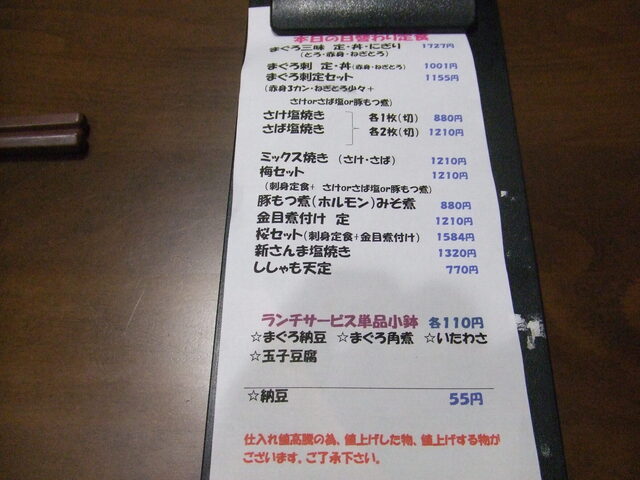 本日の日替わり定食
まぐろ三昧 定・丼・にぎり 1727円
(とろ・赤身・ねぎとろ)
まぐろ刺 定・丼(赤身・ねぎとろ) 1001円
まぐろ刺定セット 1155円
(赤身3カン・ねぎとろ少々+
さけorさば塩or豚もつ煮)
さけ塩焼き 各1枚(切) 880円
さば塩焼き 各2枚(切) 1210円
ミックス焼き (さけ・さば) 1210円
梅セット 1210円
(刺身定食+ さけorさば塩or豚もつ煮)
豚もつ煮(ホルモン)みそ煮 880円
金目煮付け 定 1210円
桜セット(刺身定食+金目煮付け) 1584円
新さんま塩焼き 1320円
ししゃも天定 770円
ランチサービス単品小鉢 各110円
☆まぐろ納豆 ☆まぐろ角煮 ☆いたわさ
☆玉子豆腐
☆納豆 55円
仕入れ値高騰の為、値上げした物、値上げする物が
ございます。ご了承下さい。